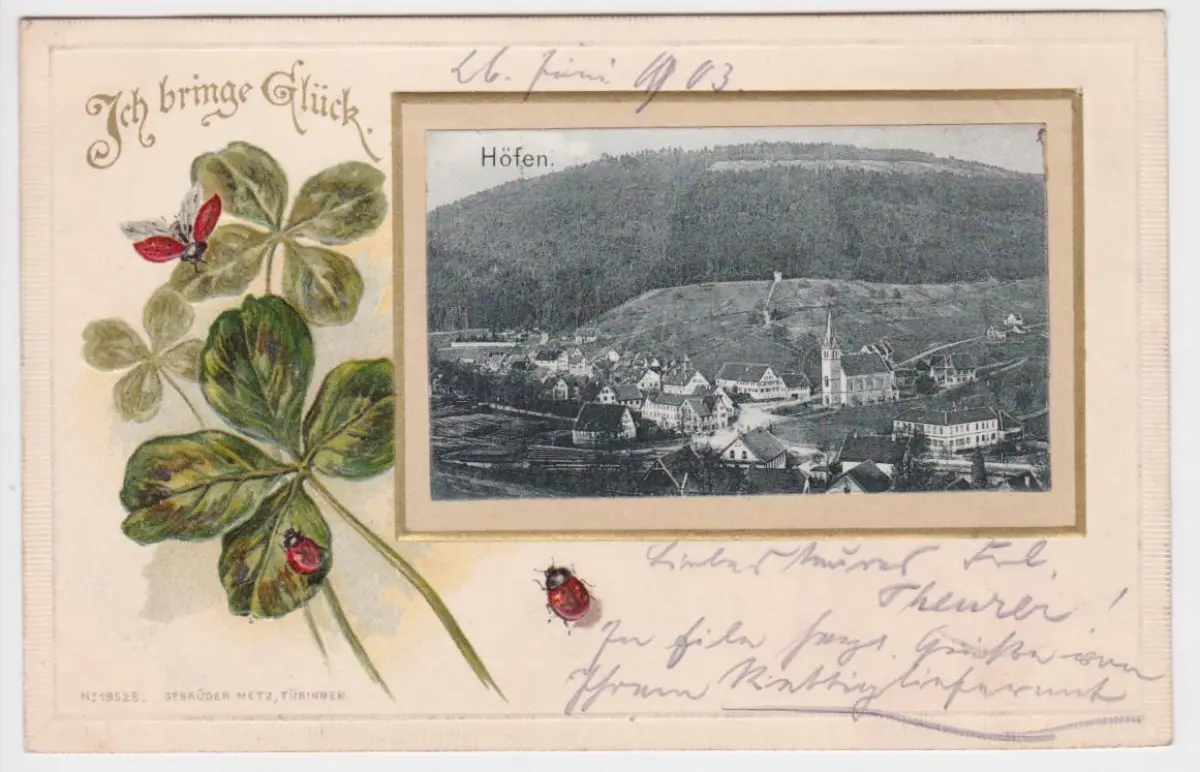 Ich bringe Glück.
26. Juni 1903.
Höfen.
Liebes teures Frl.
Theurer!
In Eile herzl. Grüße von
Ihrem
No 19525. GEBRÜDER METZ, TÜBINGEN